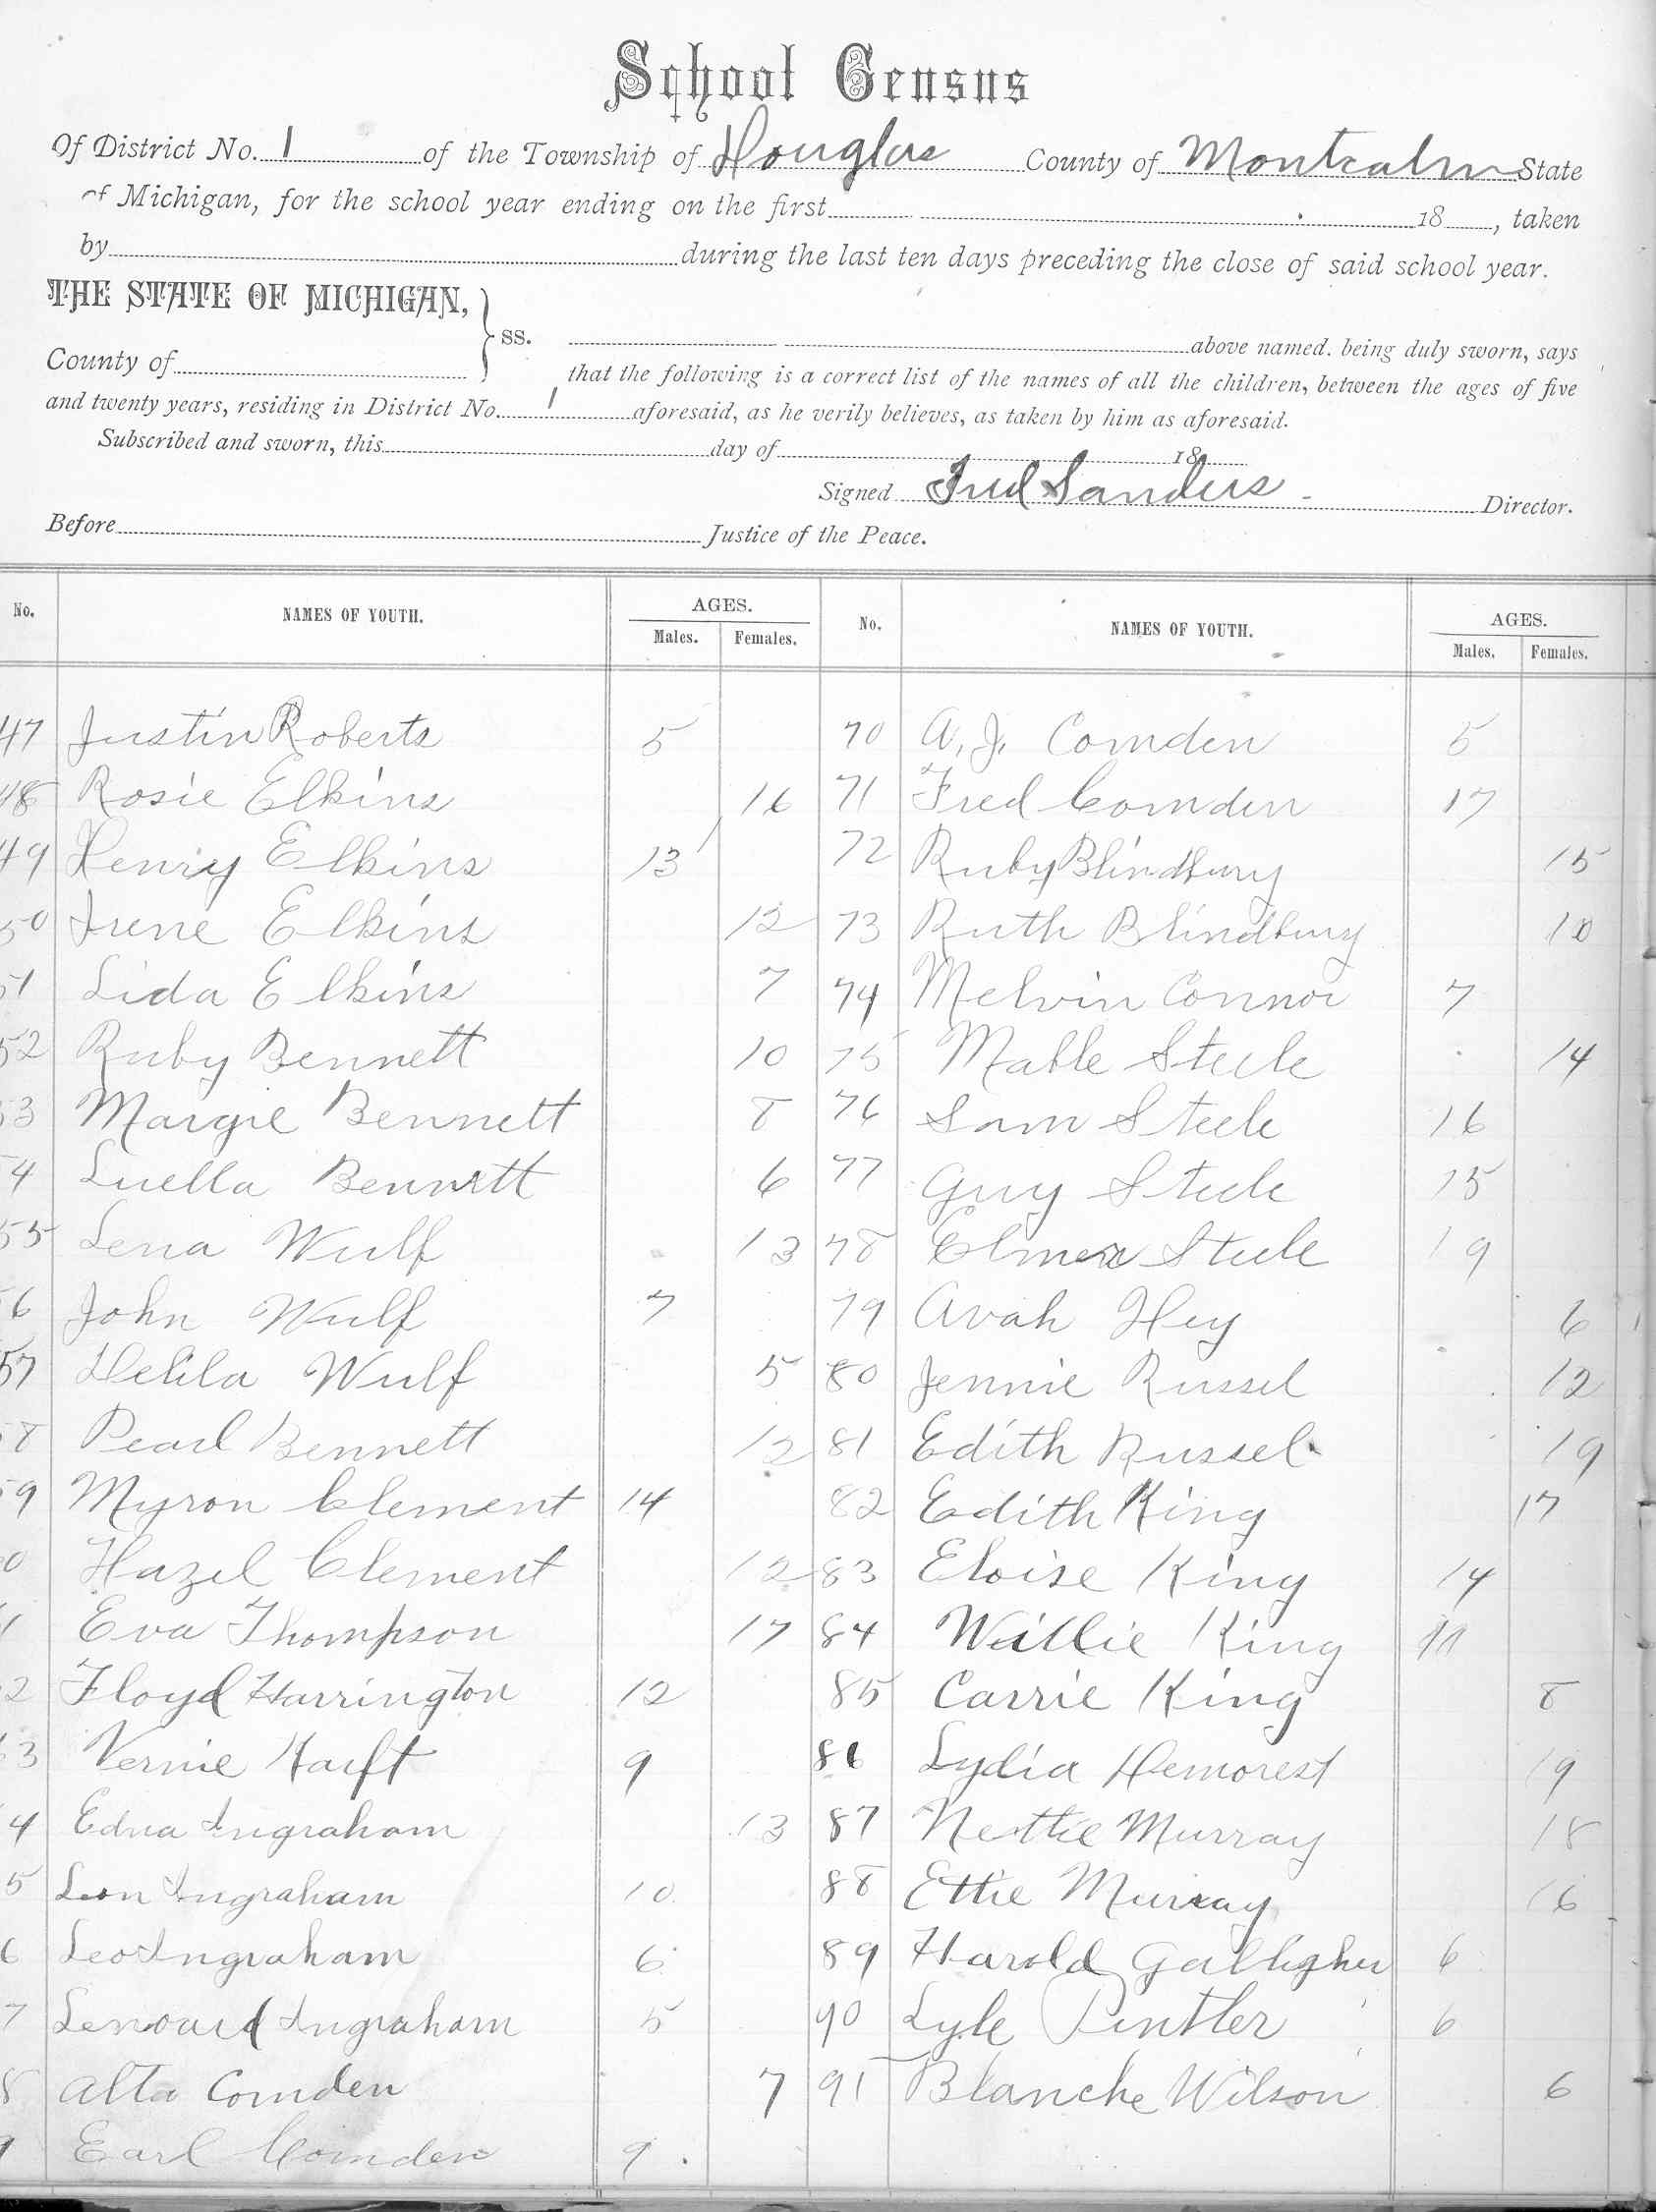 School Census
Of District No. 1 of the Township of Douglas County of Montcalm State
of Michigan, for the school year ending on the first 18 , taken
by during the last ten days preceding the close of said school year.
THE STATE OF MICHIGAN,
ss.
County of
above named. being duly sworn, says
that the following is a correct list of the names of all the children, between the ages of five
and twenty years, residing in District No. 1 aforesaid, as he verily believes, as taken by him as aforesaid.
Subscribed and sworn, this day of 18
Signed Fred Sanders Director.
Before Justice of the Peace.
No. NAMES OF YOUTH. AGES. Males. Females. No. NAMES OF YOUTH. AGES. Males. Females.
47 Justin Roberts 5 70 A. J. Comden 5
48 Rosie Elkins 16 71 Fred Comden 17
49 Henry Elkins 13 72 Ruby Blindbury 15
50 Irene Elkins 12 73 Ruth Blindbury 10
51 Lida Elkins 7 74 Melvin Connor 7
52 Ruby Bennett 10 75 Mable Steele 14
53 Margie Bennett 8 76 Sam Steele 16
4 Luella Bennett 6 77 Guy Steele 15
55 Lena Wulf 13 78 Elmer Steele 19
6 John Wulf 7 79 Avah Hey 6
57 Delila Wulf 5 80 Jennie Russel 12
8 Pearl Bennett 12 81 Edith Russel 19
59 Myron Clement 14 82 Edith King 17
0 Hazel Clement 12 83 Eloise King 14
1 Eva Thompson 17 84 Willie King 11
2 Floyd Harrington 12 85 Carrie King 8
3 Vernie 9 86 Lydia Demorest 19
4 Edna Ingraham 13 87 Nettie Murray 18
5 Leon Ingraham 10 88 Ettie Murray 16
6 Leo Ingraham 6 89 Harold Galligher 6
7 Lenoard Ingraham 5 90 Lyle Pintler 6
8 Alta Comden 7 91 Blanche Wilson 6
9 Earl Comden 9